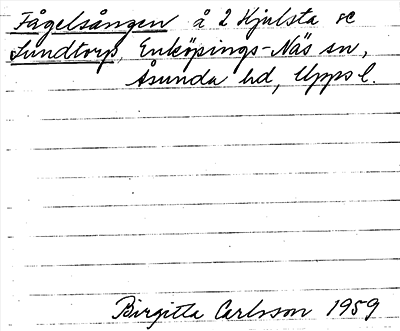 Fågelsången å 2 Hjulsta o
Lundtorp, Enköpings-Näs sn,
Åsunda hd, Upps l.
Birgitta Carlsson 1959